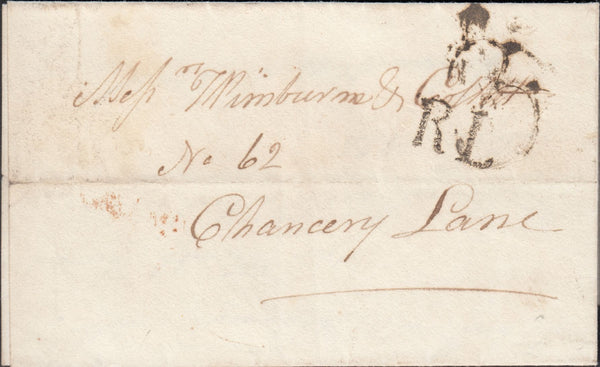 Messrs Wimburn & Collett
No 62
Chancery Lane
RL